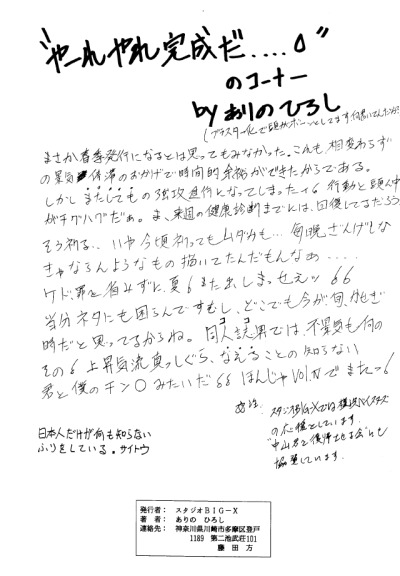 "やーれやれ完成だ....♂"
のコーナー
by ありのひろし
まさか春季発行になるとは思ってもみなかった。これも相変わらず
の景気停滞のおかげで時間的余裕ができたからである。
しかしまたしてもの強攻進行となってしまった 行動と頭ん中
がチグハグだぁ。ま、来週の健康診断までには、回復してるだろう
そう祈る.. いや今頃祈ってもムダかも… 毎晩ざんげしな
きゃならんようなもの描いてたんだもんなぁ....
ケド罪を省みずに、夏も また出しまっせぇッ
当分ネタにも困るんですむし、どこでも今が旬、かせぎ
時だと思ってるからね。同人誌界では、不景気も何の
その 上昇気流真っしぐら、なえることの知らない
君と僕のチン○みたいだ ほんじゃVol.
でまたっ
スタジオBIG-Xでは横浜ベイスターズ
の応援をしています。
も
協賛しています。
日本人だけが何も知らない
ふりをしている。サイトウ
発行者： スタジオBIG－X
著 者： ありの ひろし
連絡先： 神奈川県川崎市多摩区登戸
1189 第二池武荘101
藤田方